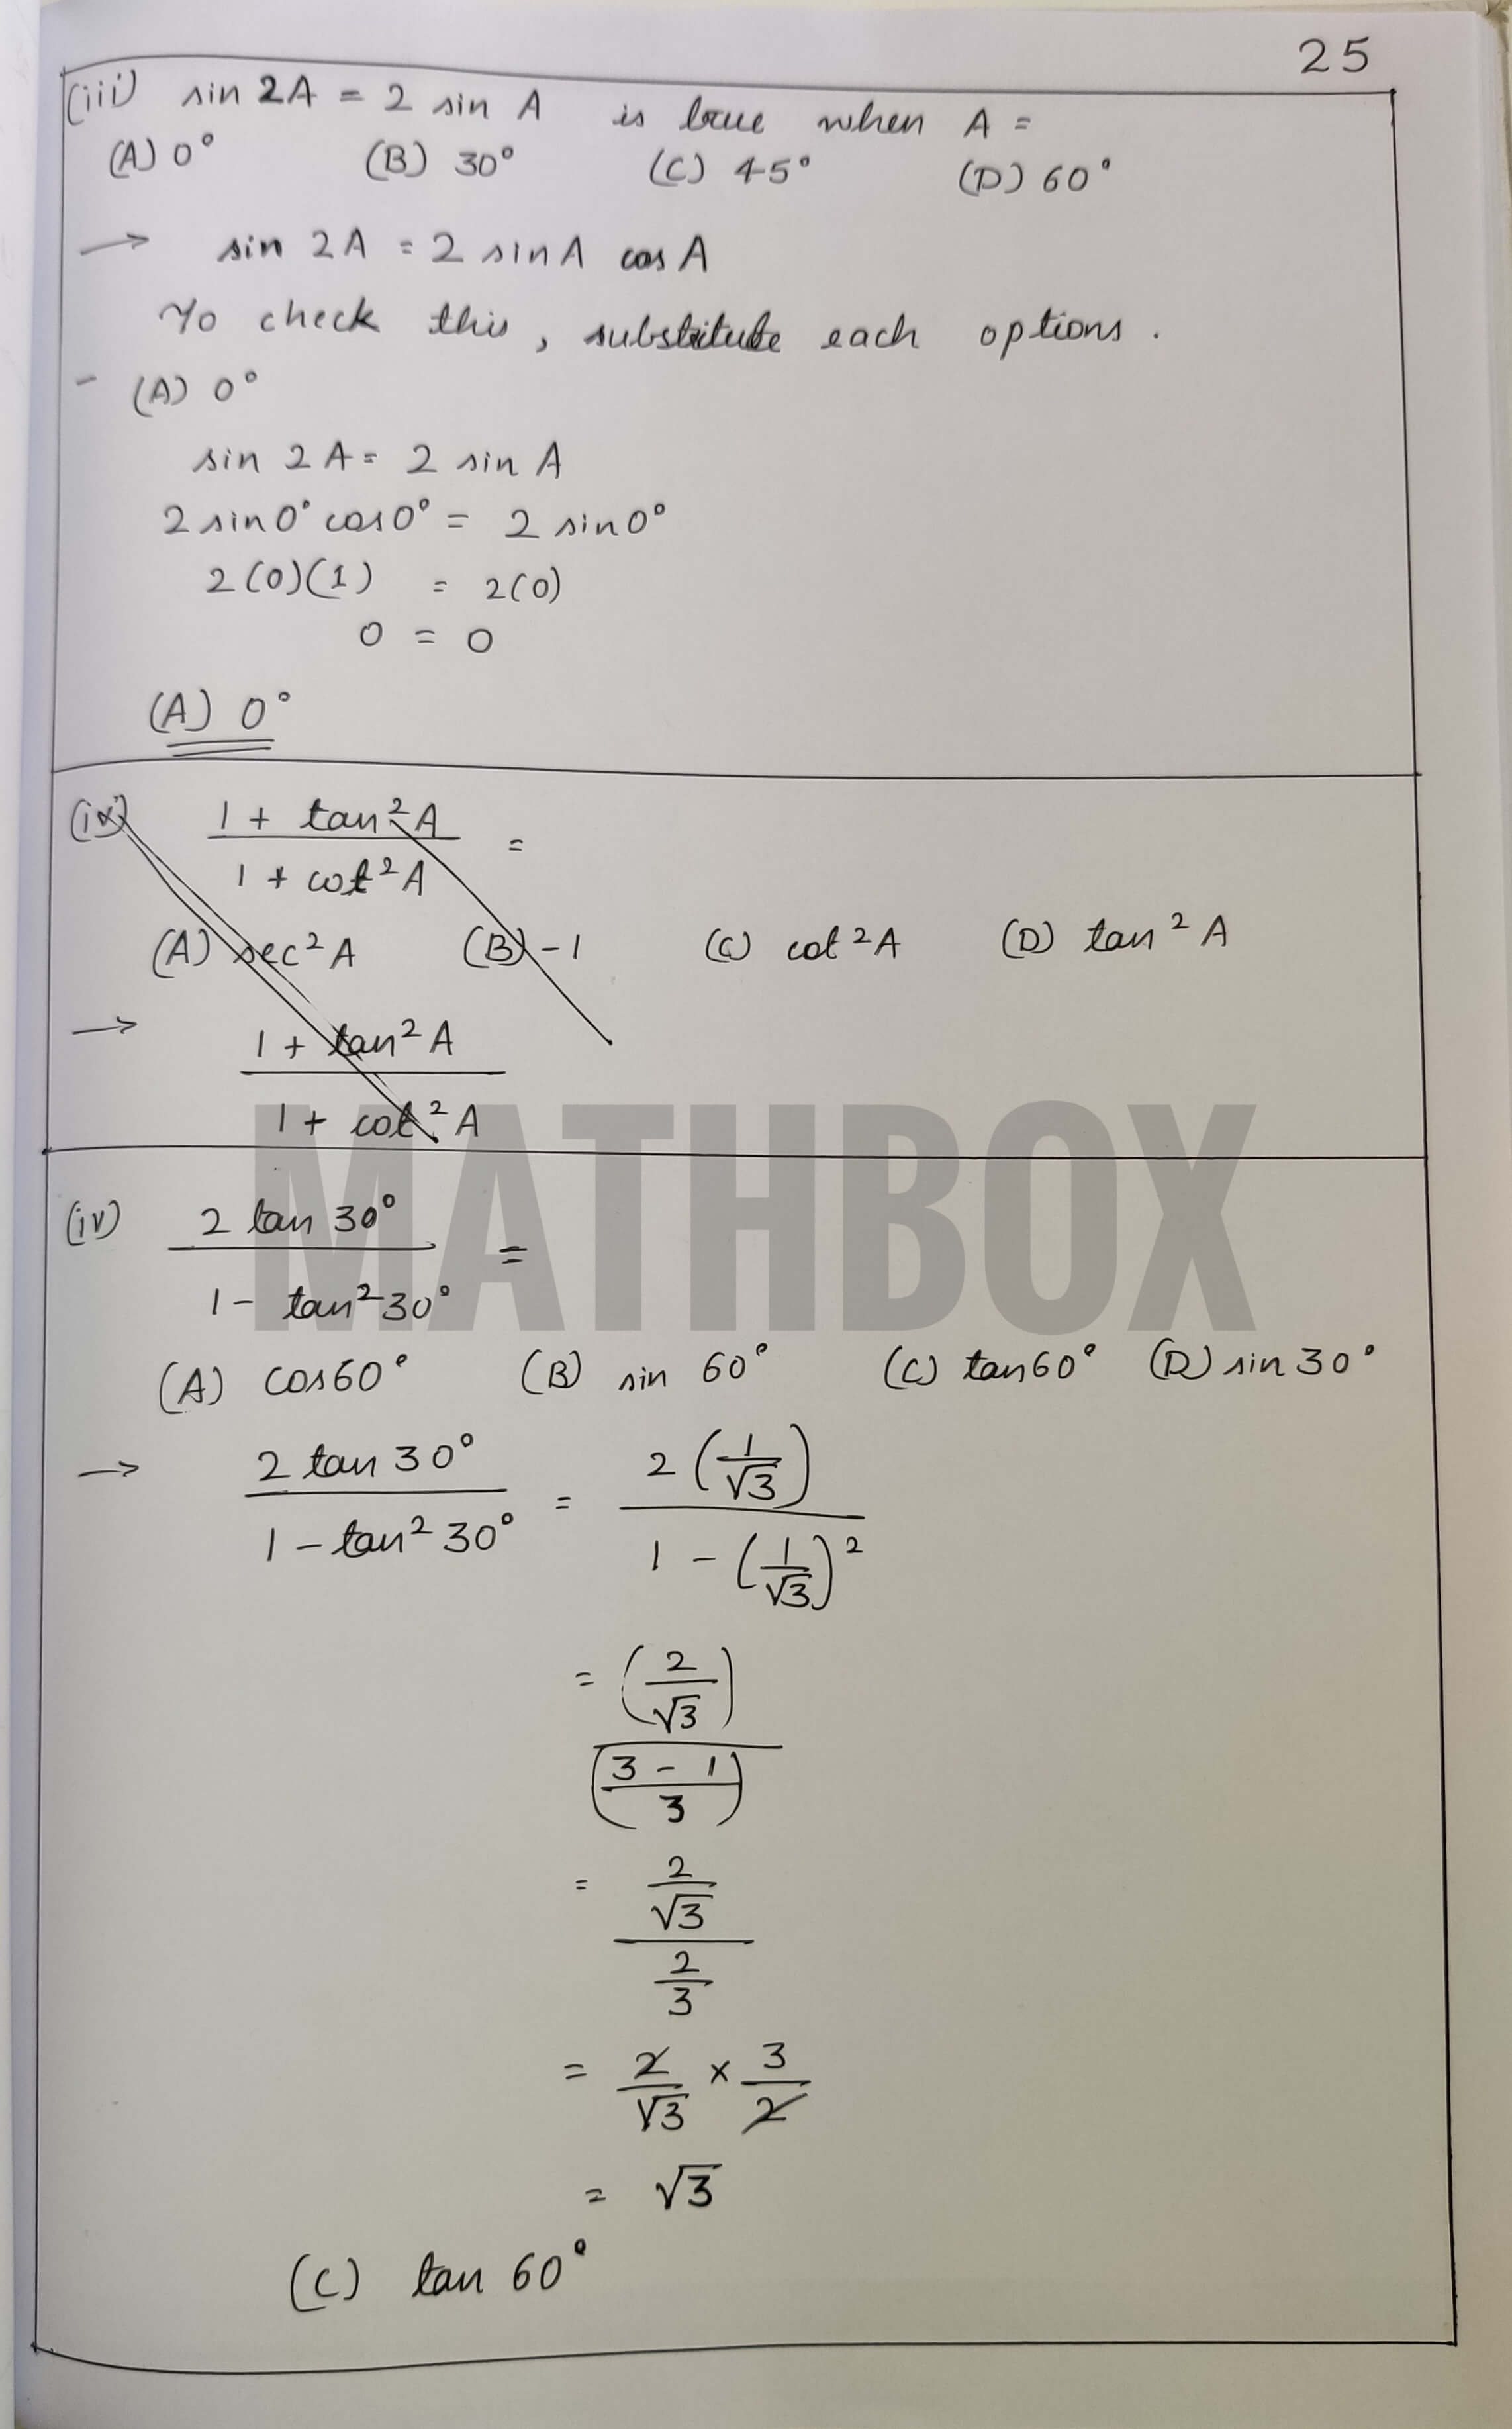 25
(iii) sin 2A = 2 sin A is true when A =
(A) 0° (B) 30° (C) 45° (D) 60°
→ sin 2A = 2 sin A cos A
To check this, substitute each options.
- (A) 0°
sin 2A = 2 sin A
2 sin 0° cos 0° = 2 sin 0°
2(0)(1) = 2(0)
0 = 0
(A) 0°
(ix) (1 + tan²A)/(1 + cot²A) =
(A) sec²A (B) -1 (C) cot²A (D) tan²A
→ (1 + tan²A)/(1 + cot²A)
MATHBOX
(iv) (2 tan 30°)/(1 - tan²30°) =
(A) cos60° (B) sin 60° (C) tan60° (D) sin 30°
→ (2 tan 30°)/(1 - tan²30°) = (2(1/√3))/(1 - (1/√3)²)
= (2/√3)/((3 - 1)/3)
= (2/√3)/(2/3)
= 2/√3 × 3/2
= √3
(C) tan 60°